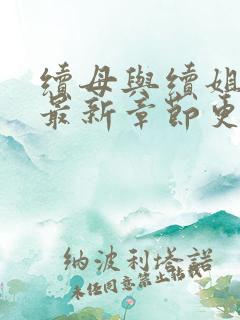 續母與續姐
最新章節更
納波利塔諾
未任同意禁止轉載